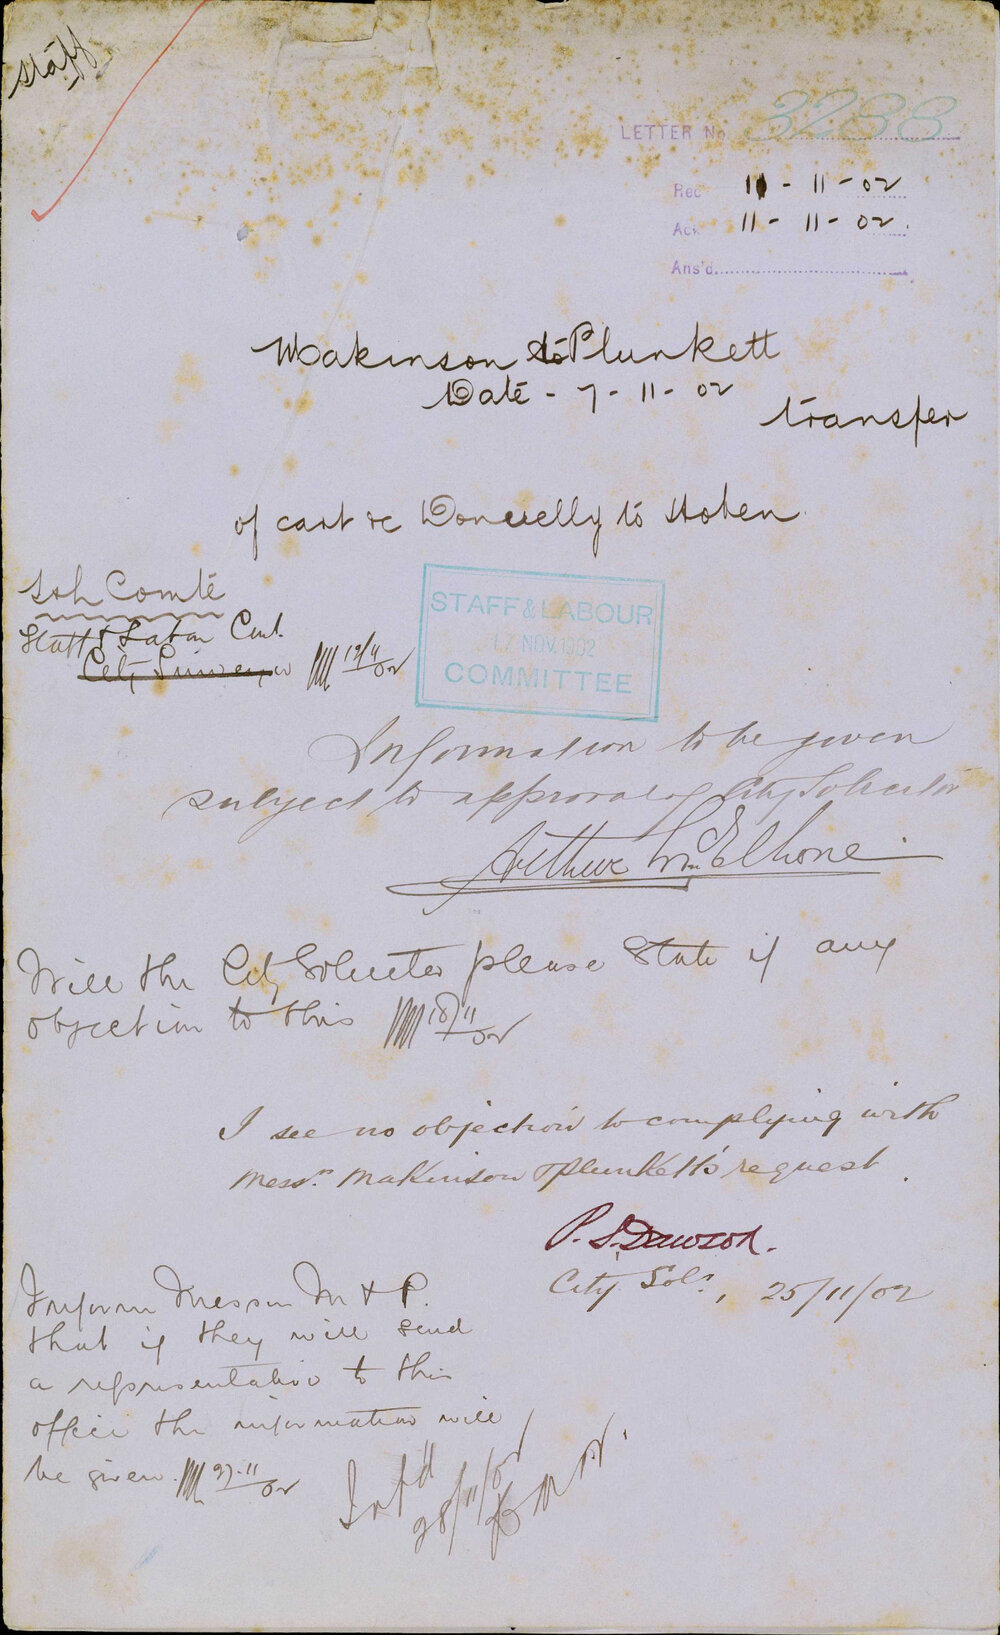 Staff
LETTER No. 3288
Rec 11-11-02
Ack 11-11-02.
Ans'd
Makinson & Plunkett
Date - 7-11-02
transfer
of cart &c Donnelly to Hoben
Sol Comte
Staff & Labour Com.
City Surveyor 12/11/02
STAFF & LABOUR
17 NOV. 1902
COMMITTEE
Information to be given
subject to approval of City Solicitor
Arthur McElhone
Will the City Solicitor please state if any
objection to this 18/11/02
I see no objection to complying with
Messrs. Makinson & Plunkett's request.
P. S. Dawson.
City Solr., 25/11/02
Inform Messrs M & P.
that if they will send
a representative to this
office the information will
be given. 27.11/02
Inf'd
28/11/02